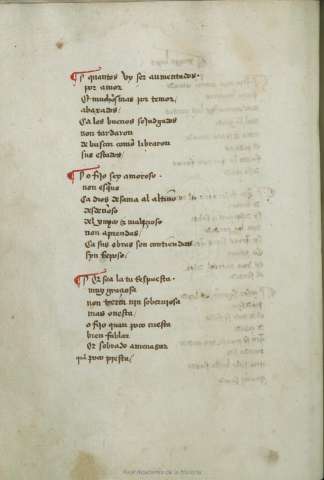 quantos vy ser aumentados
por amor
& muchos mas por temor
abaxados
Ca los buenos sojudgados
non tardaron
de buscar como libraron
sus estados
O fijo sey amoroso
non esquo
Ca dios desama al altiuo
desdeñoso
del &
non aprendas
Ca sus obras son contiendas
syn Reposo
sea la tu Respuesta
muy graçiosa
non nin soberuiosa
mas onesta
o fijo quan poco cuesta
bien fablar
& sobrado amenazar
poco presta
Real Academia de la Historia